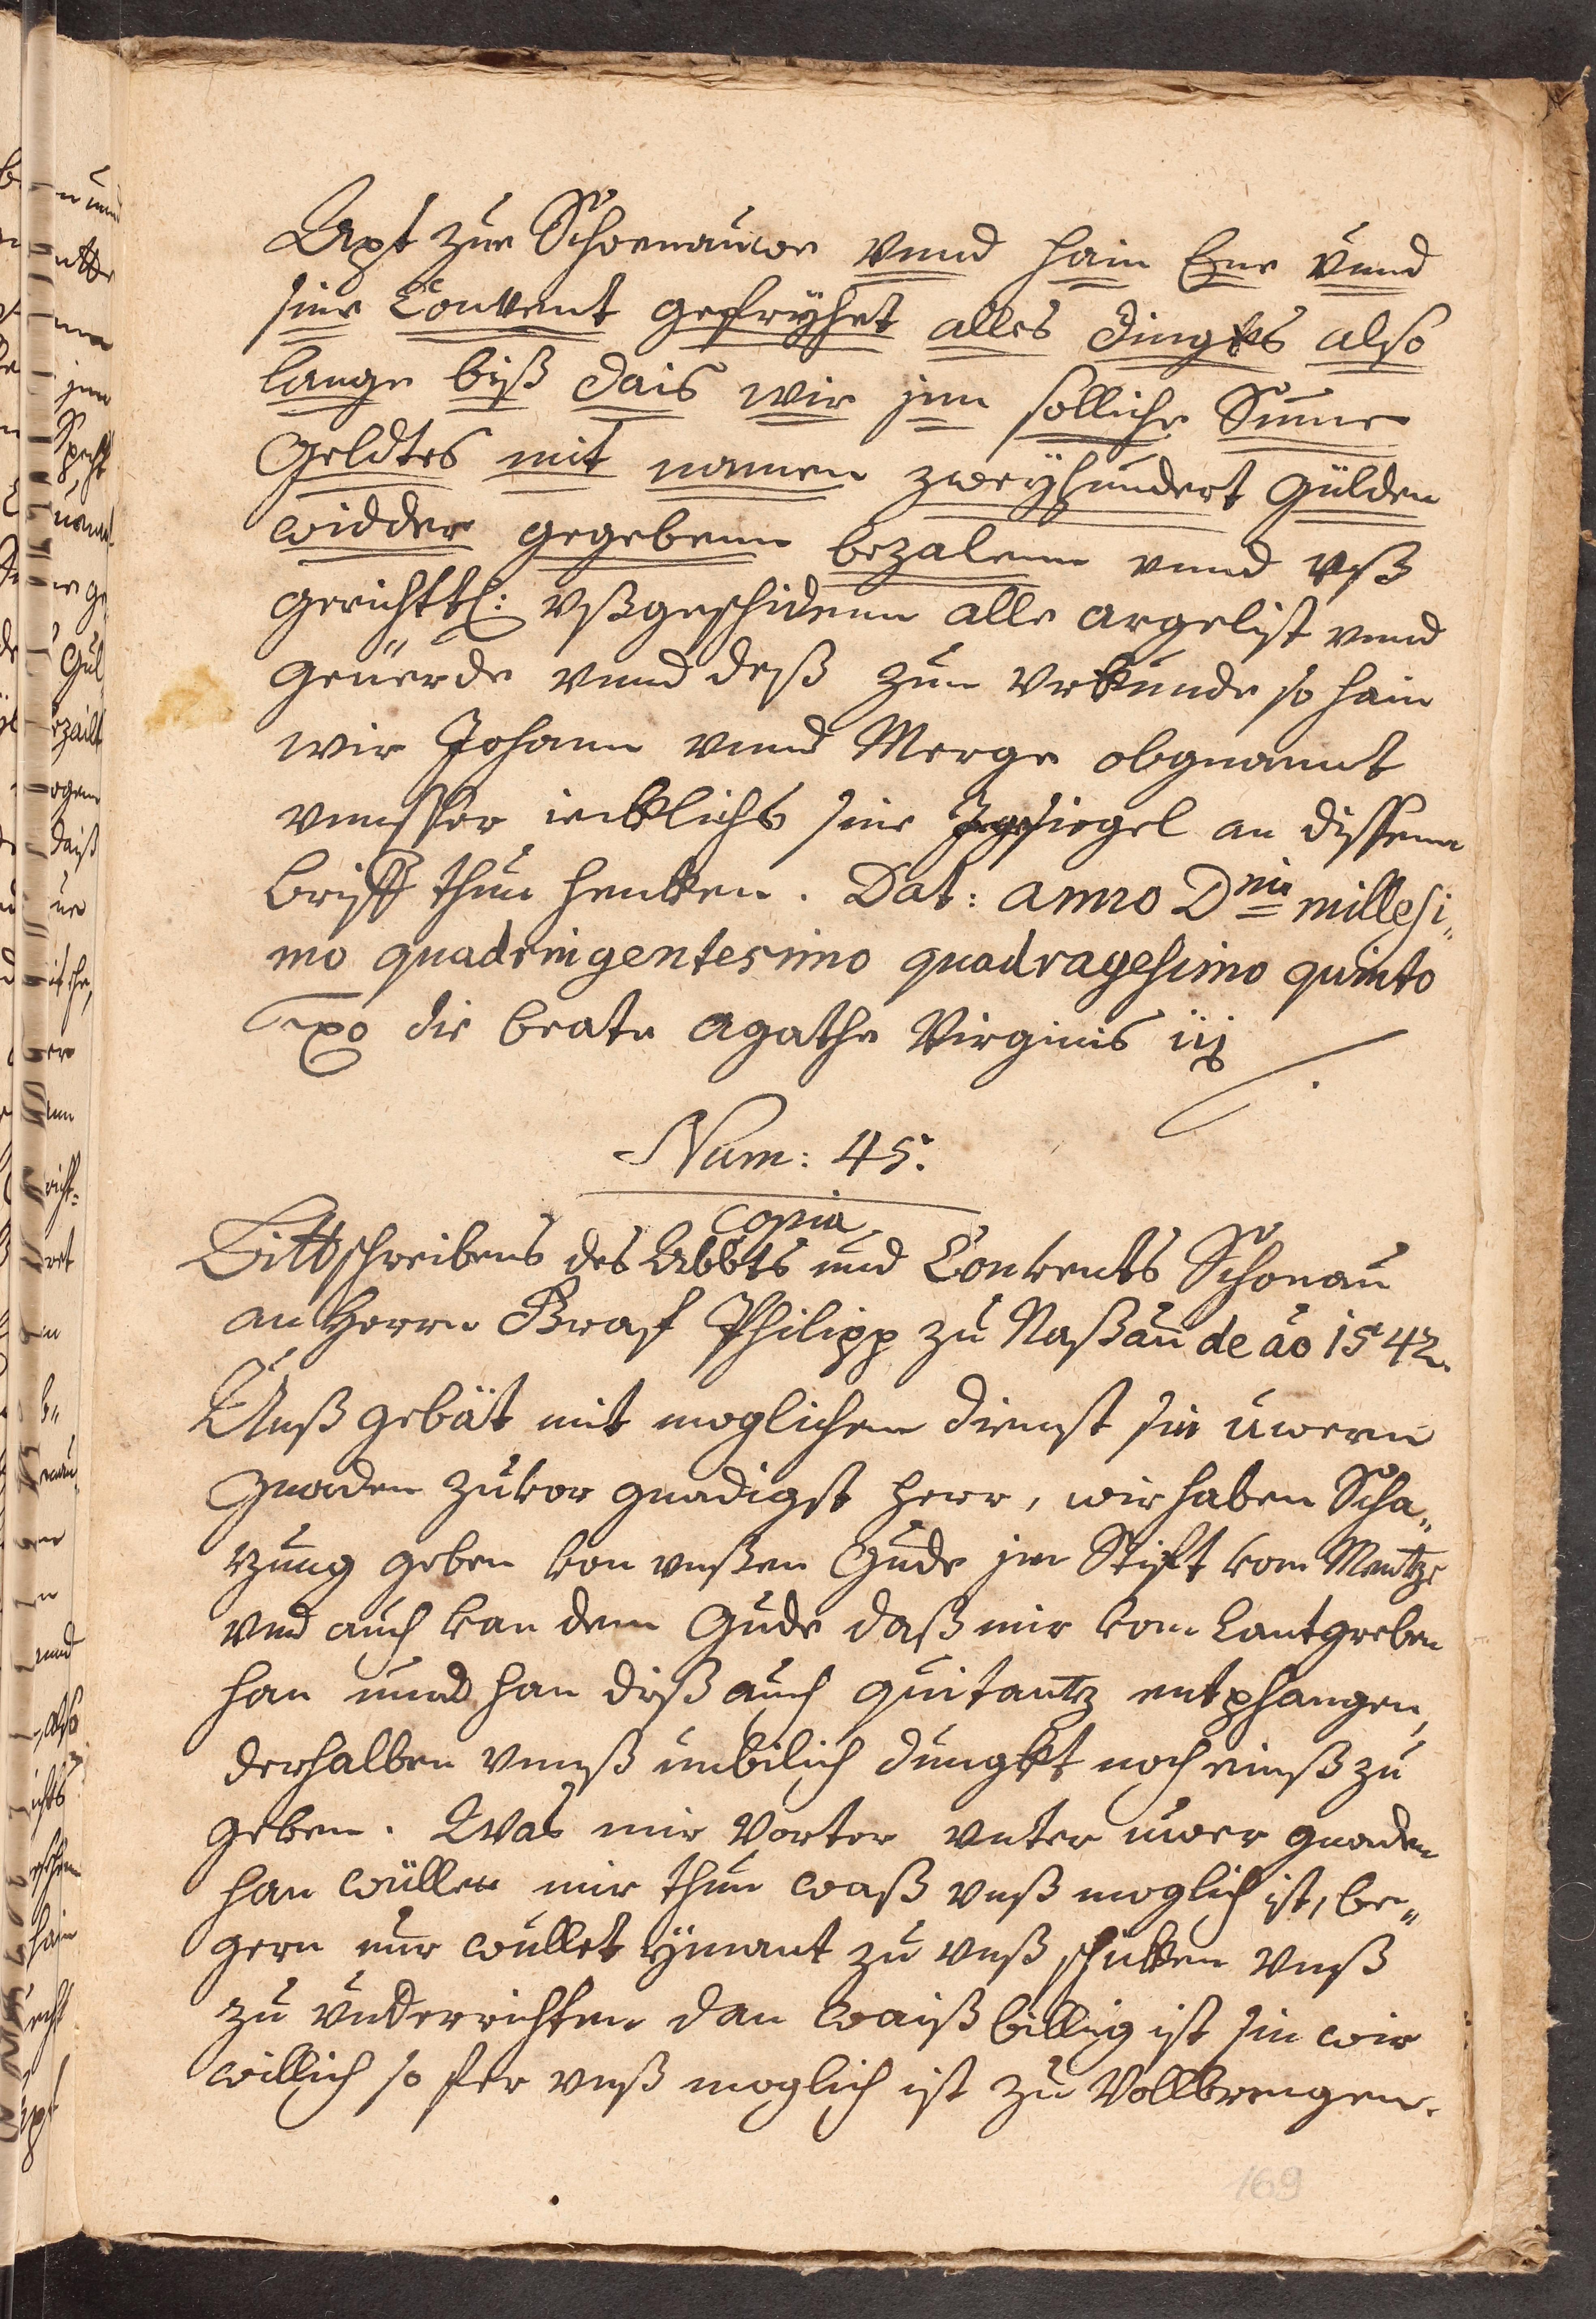 Apt zue Schoenauwe vnnd hain Eme vnnd
sine Conuent gefryhet alles dingks also
lange biß dais wir jnn solliche Sume
Geldtes mit namen zweyhundert gülden
widder gegebenn bezalenn vnnd vß
gerichttl: vßgescheidenn alle argelist vnnd
geuerde vnnd deß zum Vrkunde so hain
wir Johann vnnd Merge obgnannt
vnnsser iecklichs sine Ingsiegel an dissenn
brieff thun hencken. Dat: anno Dni millesi„
mo quadringentesimo quadragesimo quinto
ipo die beate Agathe Virginis
Num: 45.
Copia
Bittschreibens des Abbts und Convents Schönau
an Herrn Graf Philipp zu Naßau de ao 1542.
Unß gebät mit moglichem dienst sin uwern
Gnaden zuvor gnadigst herr, wir haben Scha„
tzung geben von unßen Gude im Stift von Mentze
vnd auch van dem Gude daß mir vom Lantgreben
han unnd han dieß auch quitantz entphangen,
derhalben vnnß unbilich dungkt noch einß zu
geben. Was mir vorter vnter uwer gnaden
han wüllen mir thun waß vnß moglich ist, be„
gern nur wullet ymant zu vnß schicken vnnß
zu vnderrichten dan waiß billig ist sin wir
willich so fer vnß moglich ist zu vollbrengen.
169